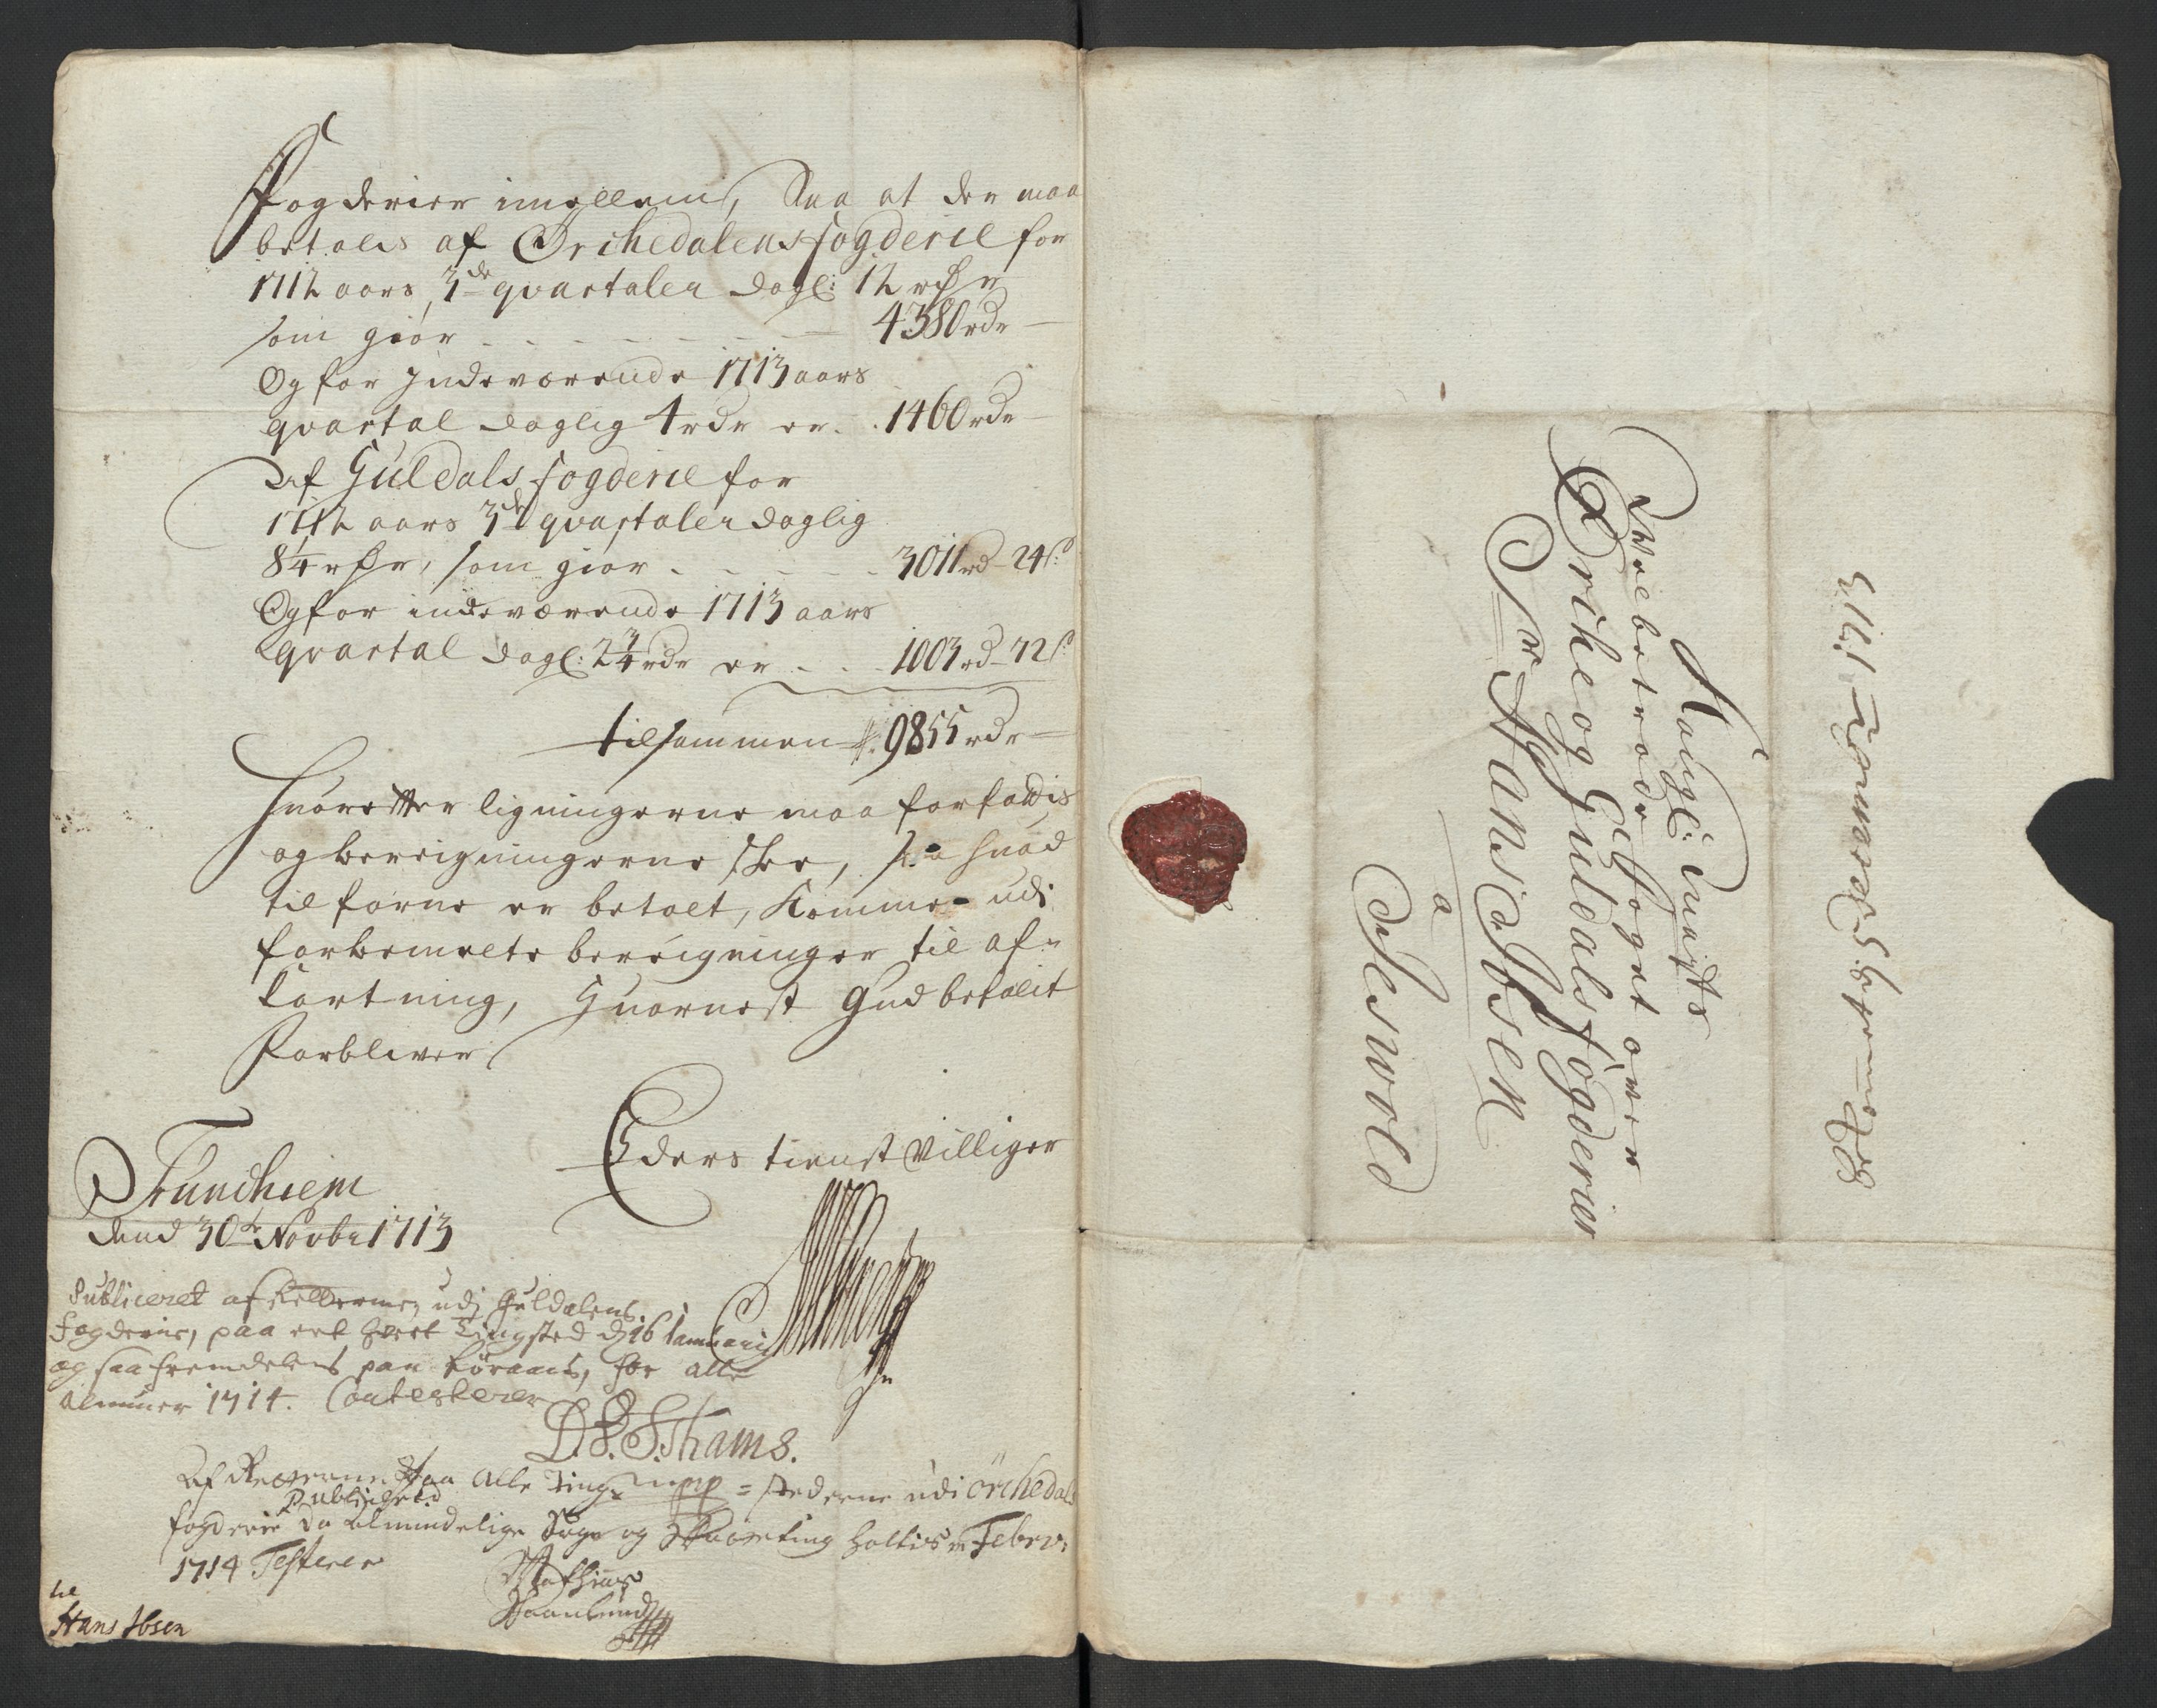 Fogderier imellem, Saa at der maa
betales af Orchedalens fogderie for
1712 aars 3de qvartaler dagl: 12 rdr
som giør - - - 4380 rdr
Og for indeværende 1713 aars
qvartal daglig 4 rdr er - 1460 rdr
Af Guldals fogderie for
1712 aars 3de qvartaler daglig
8 1/4 rdr, som giør - - - 3011 rd - 24 s:
Og for indeværende 1713 aars
qvartal dagl: 2 3/4 rdr er - - 1003 rd - 72 s:
tilsammen 9855 rdr
Huorefter ligningerne maa forfattis
og berrigningerne skee, saa huad
tilforne er betalt, Kommer udi
forbemelte berrigninger til af-
Kortning, Huornest Gud befalit
Forbliver
Eders tienstvilliger
Trundhiem
dend 30te Novbr 1713
Publiceret af udj Guldalens
Fogderie, paa ret Tingsted d: 16 Januarij
og saa fremdelis paa for alle
almuer 1714. Contesterer
D. F. Thams.
Af Retterne paa Alle Tingstederne udi Orchedals
Publiceret
fogderie da almindelige Sage og Skatteting holtis in Febrv:
1714 Testerer
til
Hans Ibsen
Kongl: Mayts
Velbetroede foget over
Orche og Guldals fogderier
Sr Hans Ibsen
a
Schesvold
5 Decemer 1713